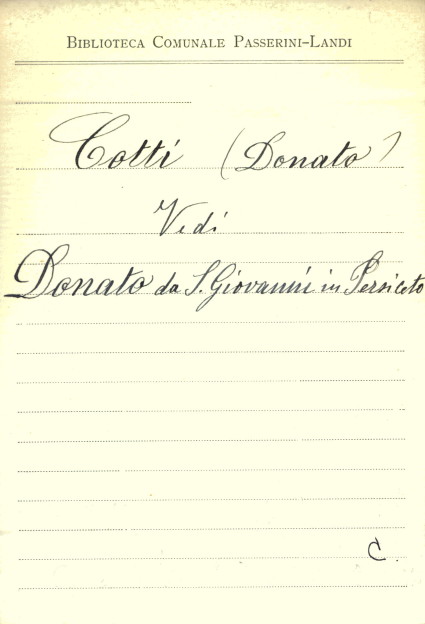 Biblioteca Comunale Passerini-Landi
Cotti (Donato)
Vedi
Donato da S. Giovanni in Persiceto
C.